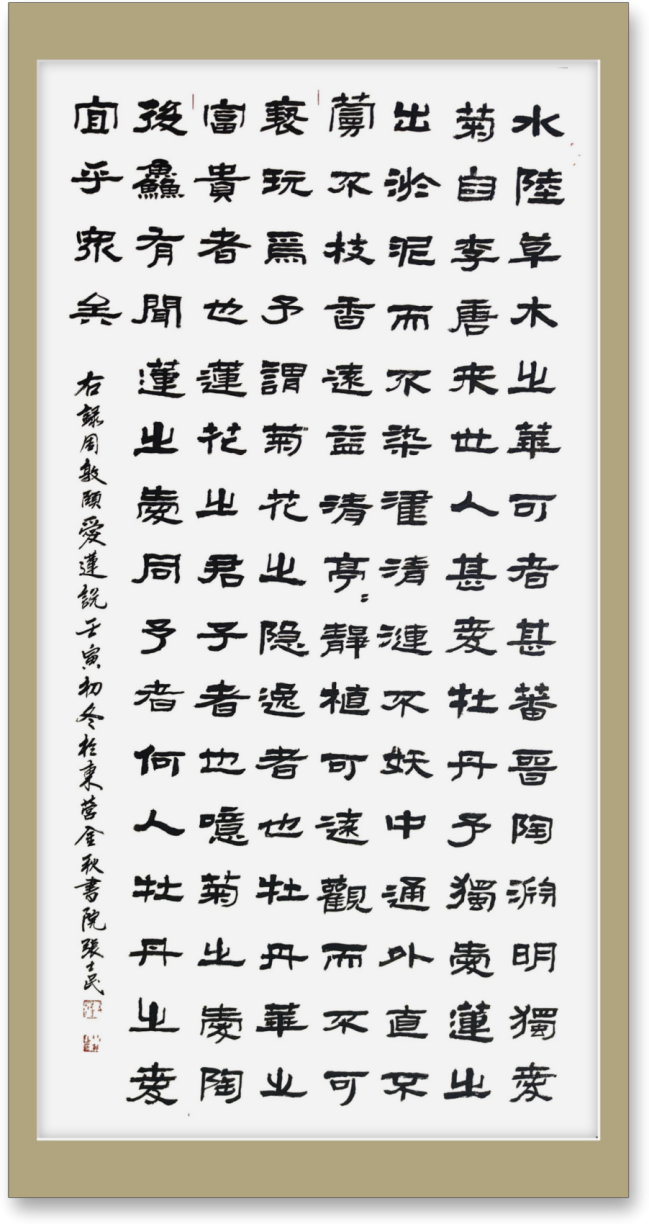 水陸草木之華可者甚蕃晉陶渊明獨爱
菊自李唐来世人甚爱牡丹予獨愛蓮之
出淤泥而不染濯清漣不妖中通外直不
蔓不枝香遠益清亭〻静植可遠觀而不可
亵玩焉予謂菊花之隐逸者也牡丹華之
富貴者也蓮花之君子者也噫菊之愛陶
後鱻有聞蓮之愛同予者何人牡丹之爱
宜乎眾矣
右錄周敦頤愛蓮説壬寅初冬於東营金秋書院張士民